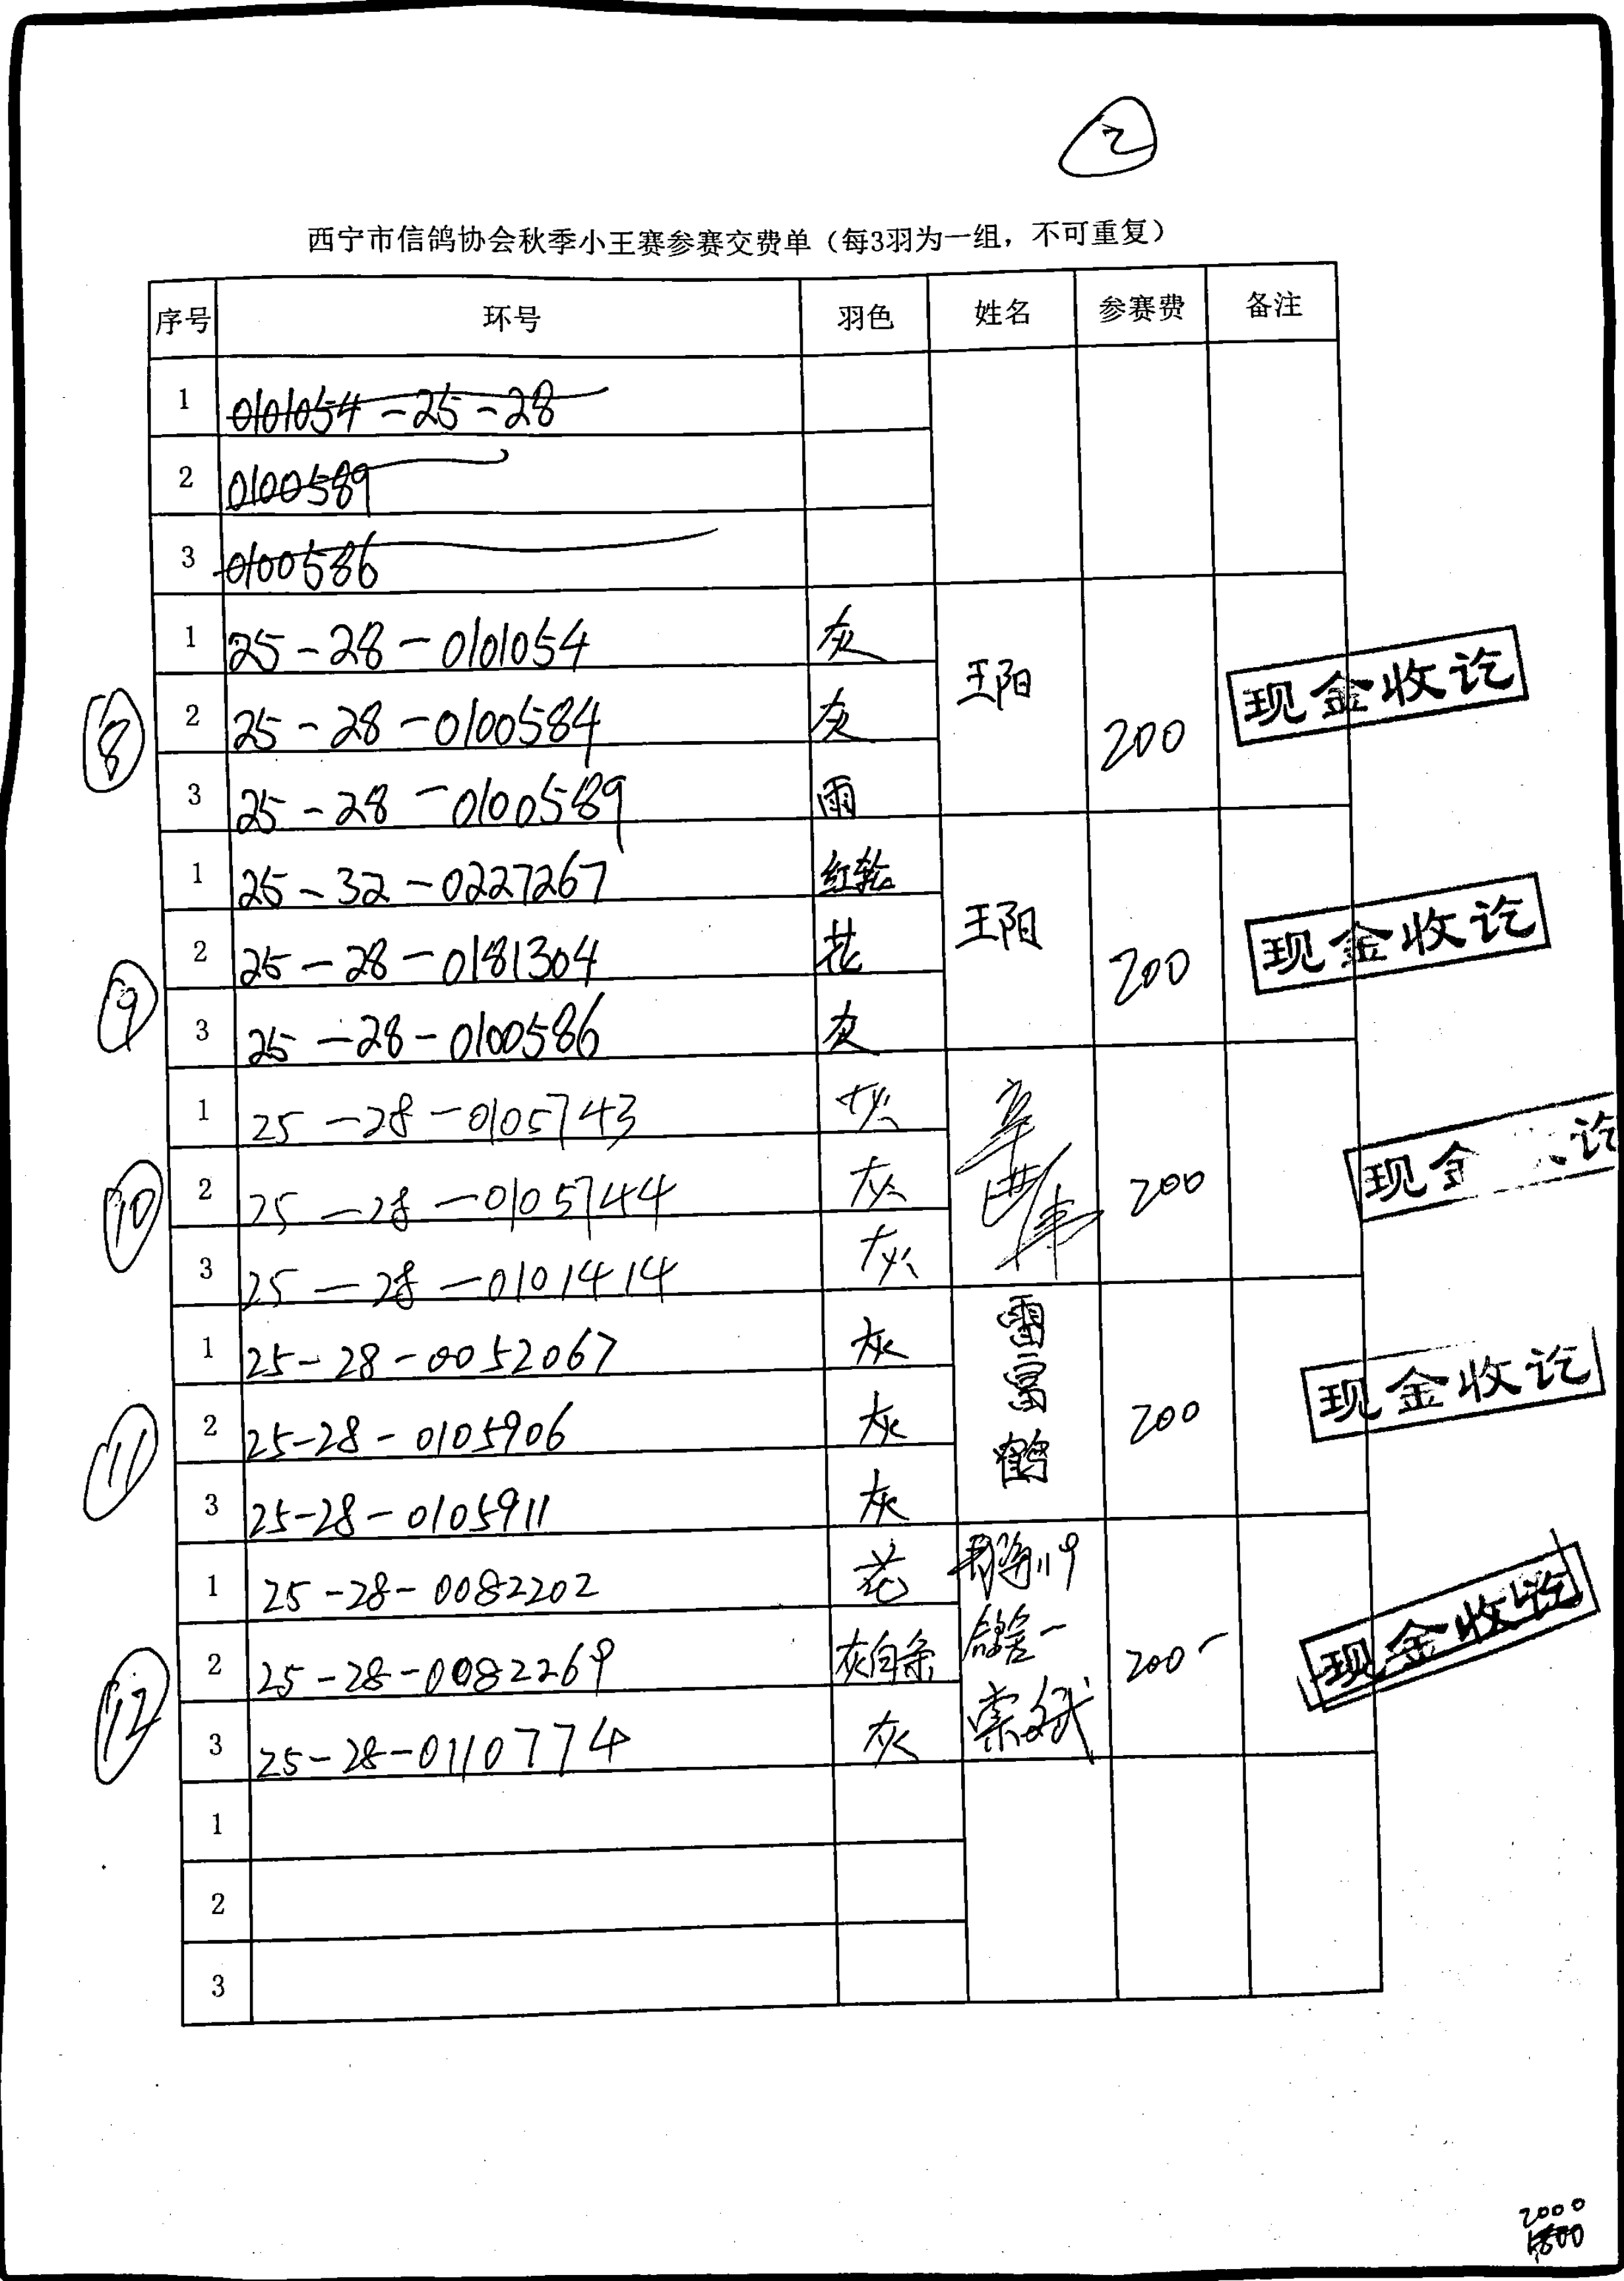 2
西宁市信鸽协会秋季小王赛参赛交费单（每3羽为一组，不可重复）
序号 环号 羽色 姓名 参赛费 备注
1 0101054-25-28
2 0100589
3 0100586
8
1 25-28-0101054 灰
2 25-28-0100584 灰 王阳 200 现金收讫
3 25-28-0100589 雨
9
1 25-32-0227267 红轮
2 25-28-0181304 花 王阳 200 现金收讫
3 25-28-0100586 灰
10
1 25-28-0105743 灰
2 25-28-0105744 灰 200 现金 讫
3 25-28-0101414 灰
11
1 25-28-0052067 灰
2 25-28-0105906 灰 雷富鹤 200 现金收讫
3 25-28-0105911 灰
12
1 25-28-0082202 花
2 25-28-0082269 灰白条 200- 现金收讫
3 25-28-0110774 灰 索文斌
1
2
3
2000
1800